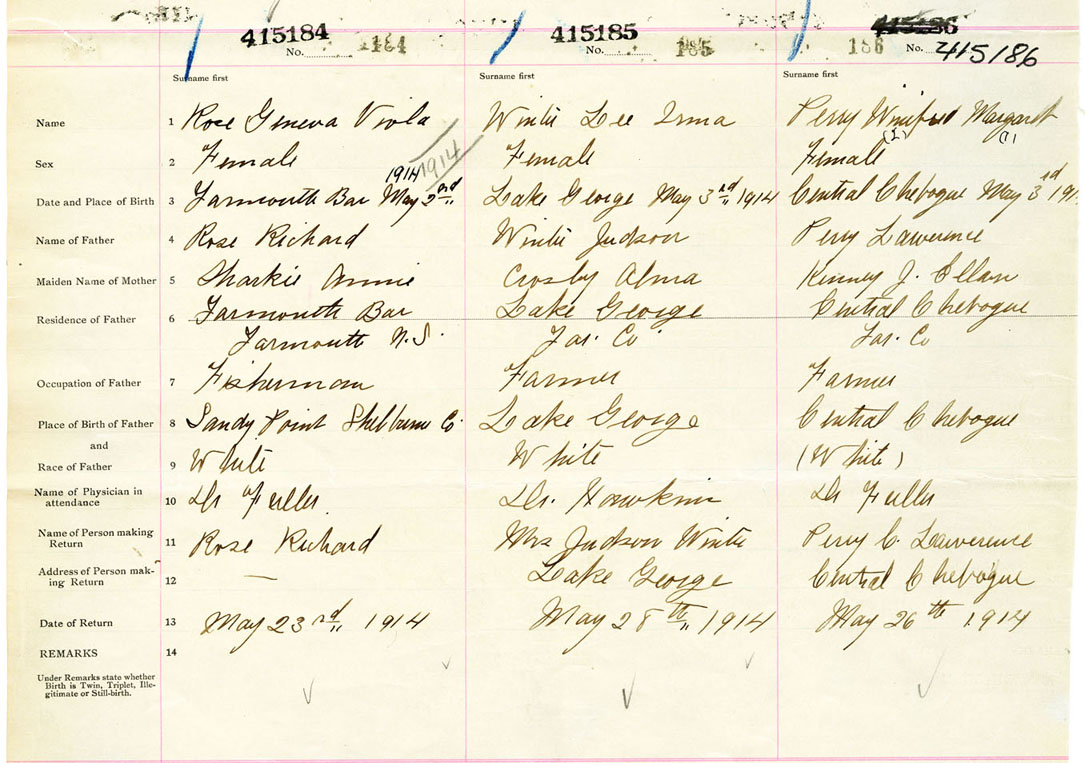 415184
No. 184
415185
No. 185
186 No. 415186
Surname first
Surname first
Surname first
Name 1 Rose Geneva Viola
Lee Irma
Perry Winifred Margaret
(2) (1)
Sex 2 Female
Female
Female
1914 1914
Date and Place of Birth 3 Yarmouth Bar May 2nd
Lake George May 3rd 1914
Central Chebogue May 3rd 191
Name of Father 4 Rose Richard
Judson
Perry Lawerence
Maiden Name of Mother 5 Sharkie Annie
Crosby Alma
Kinney J. Ellan
Residence of Father 6 Yarmouth Bar
Yarmouth N.S.
Lake George
Yar. Co
Central Chebogue
Yar. Co
Occupation of Father 7 Fisherman
Farmer
Farmer
Place of Birth of Father 8 Sandy Point Shelburne Co.
Lake George
Central Chebogue
and
Race of Father 9 White
White
(White)
Name of Physician in
attendance 10 Dr Fuller.
Dr. Hawkins
Dr Fuller
Name of Person making
Return 11 Rose Richard
Mrs Judson
Perry C. Lawerence
Address of Person mak-
ing Return 12 —
Lake George
Central Chebogue
Date of Return 13 May 23rd 1914
May 28th 1914
May 26th 1914
REMARKS 14
Under Remarks state whether
Birth is Twin, Triplet, Ille-
gitimate or Still-birth.